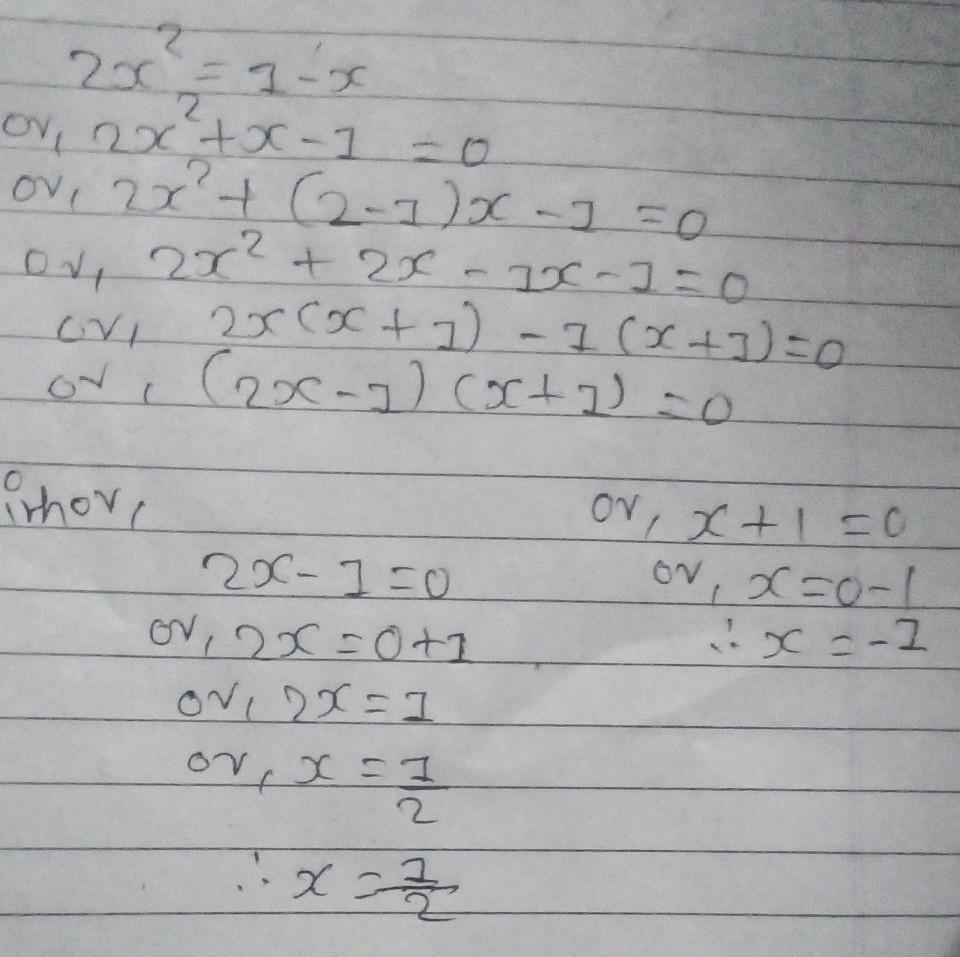 2x² = 1 - x
or, 2x² + x - 1 = 0
or, 2x² + (2-1)x - 1 = 0
or, 2x² + 2x - 1x - 1 = 0
or, 2x(x+1) - 1(x+1) = 0
or, (2x-1) (x+1) = 0
or, x + 1 = 0
2x - 1 = 0
or, x = 0 - 1
or, 2x = 0 + 1
∴ x = -1
or, 2x = 1
or, x = 1/2
∴ x = 1/2